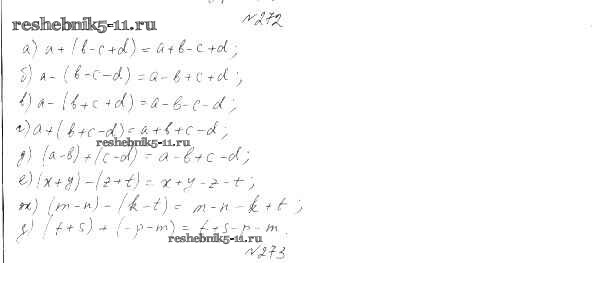 №272
reshebnik5-11.ru
а) a+(b-c+d)=a+b-c+d;
б) a-(b-c-d)=a-b+c+d;
в) a-(b+c+d)=a-b-c-d;
г) a+(b+c-d)=a+b+c-d;
reshebnik5-11.ru
д) (a-b)+(c-d)=a-b+c-d;
е) (x+y)-(z+t)=x+y-z-t;
ж) (m-n)-(k-t)=m-n-k+t;
з) (t+s)+(-p-m)=t+s-p-m.
reshebnik5-11.ru
№273